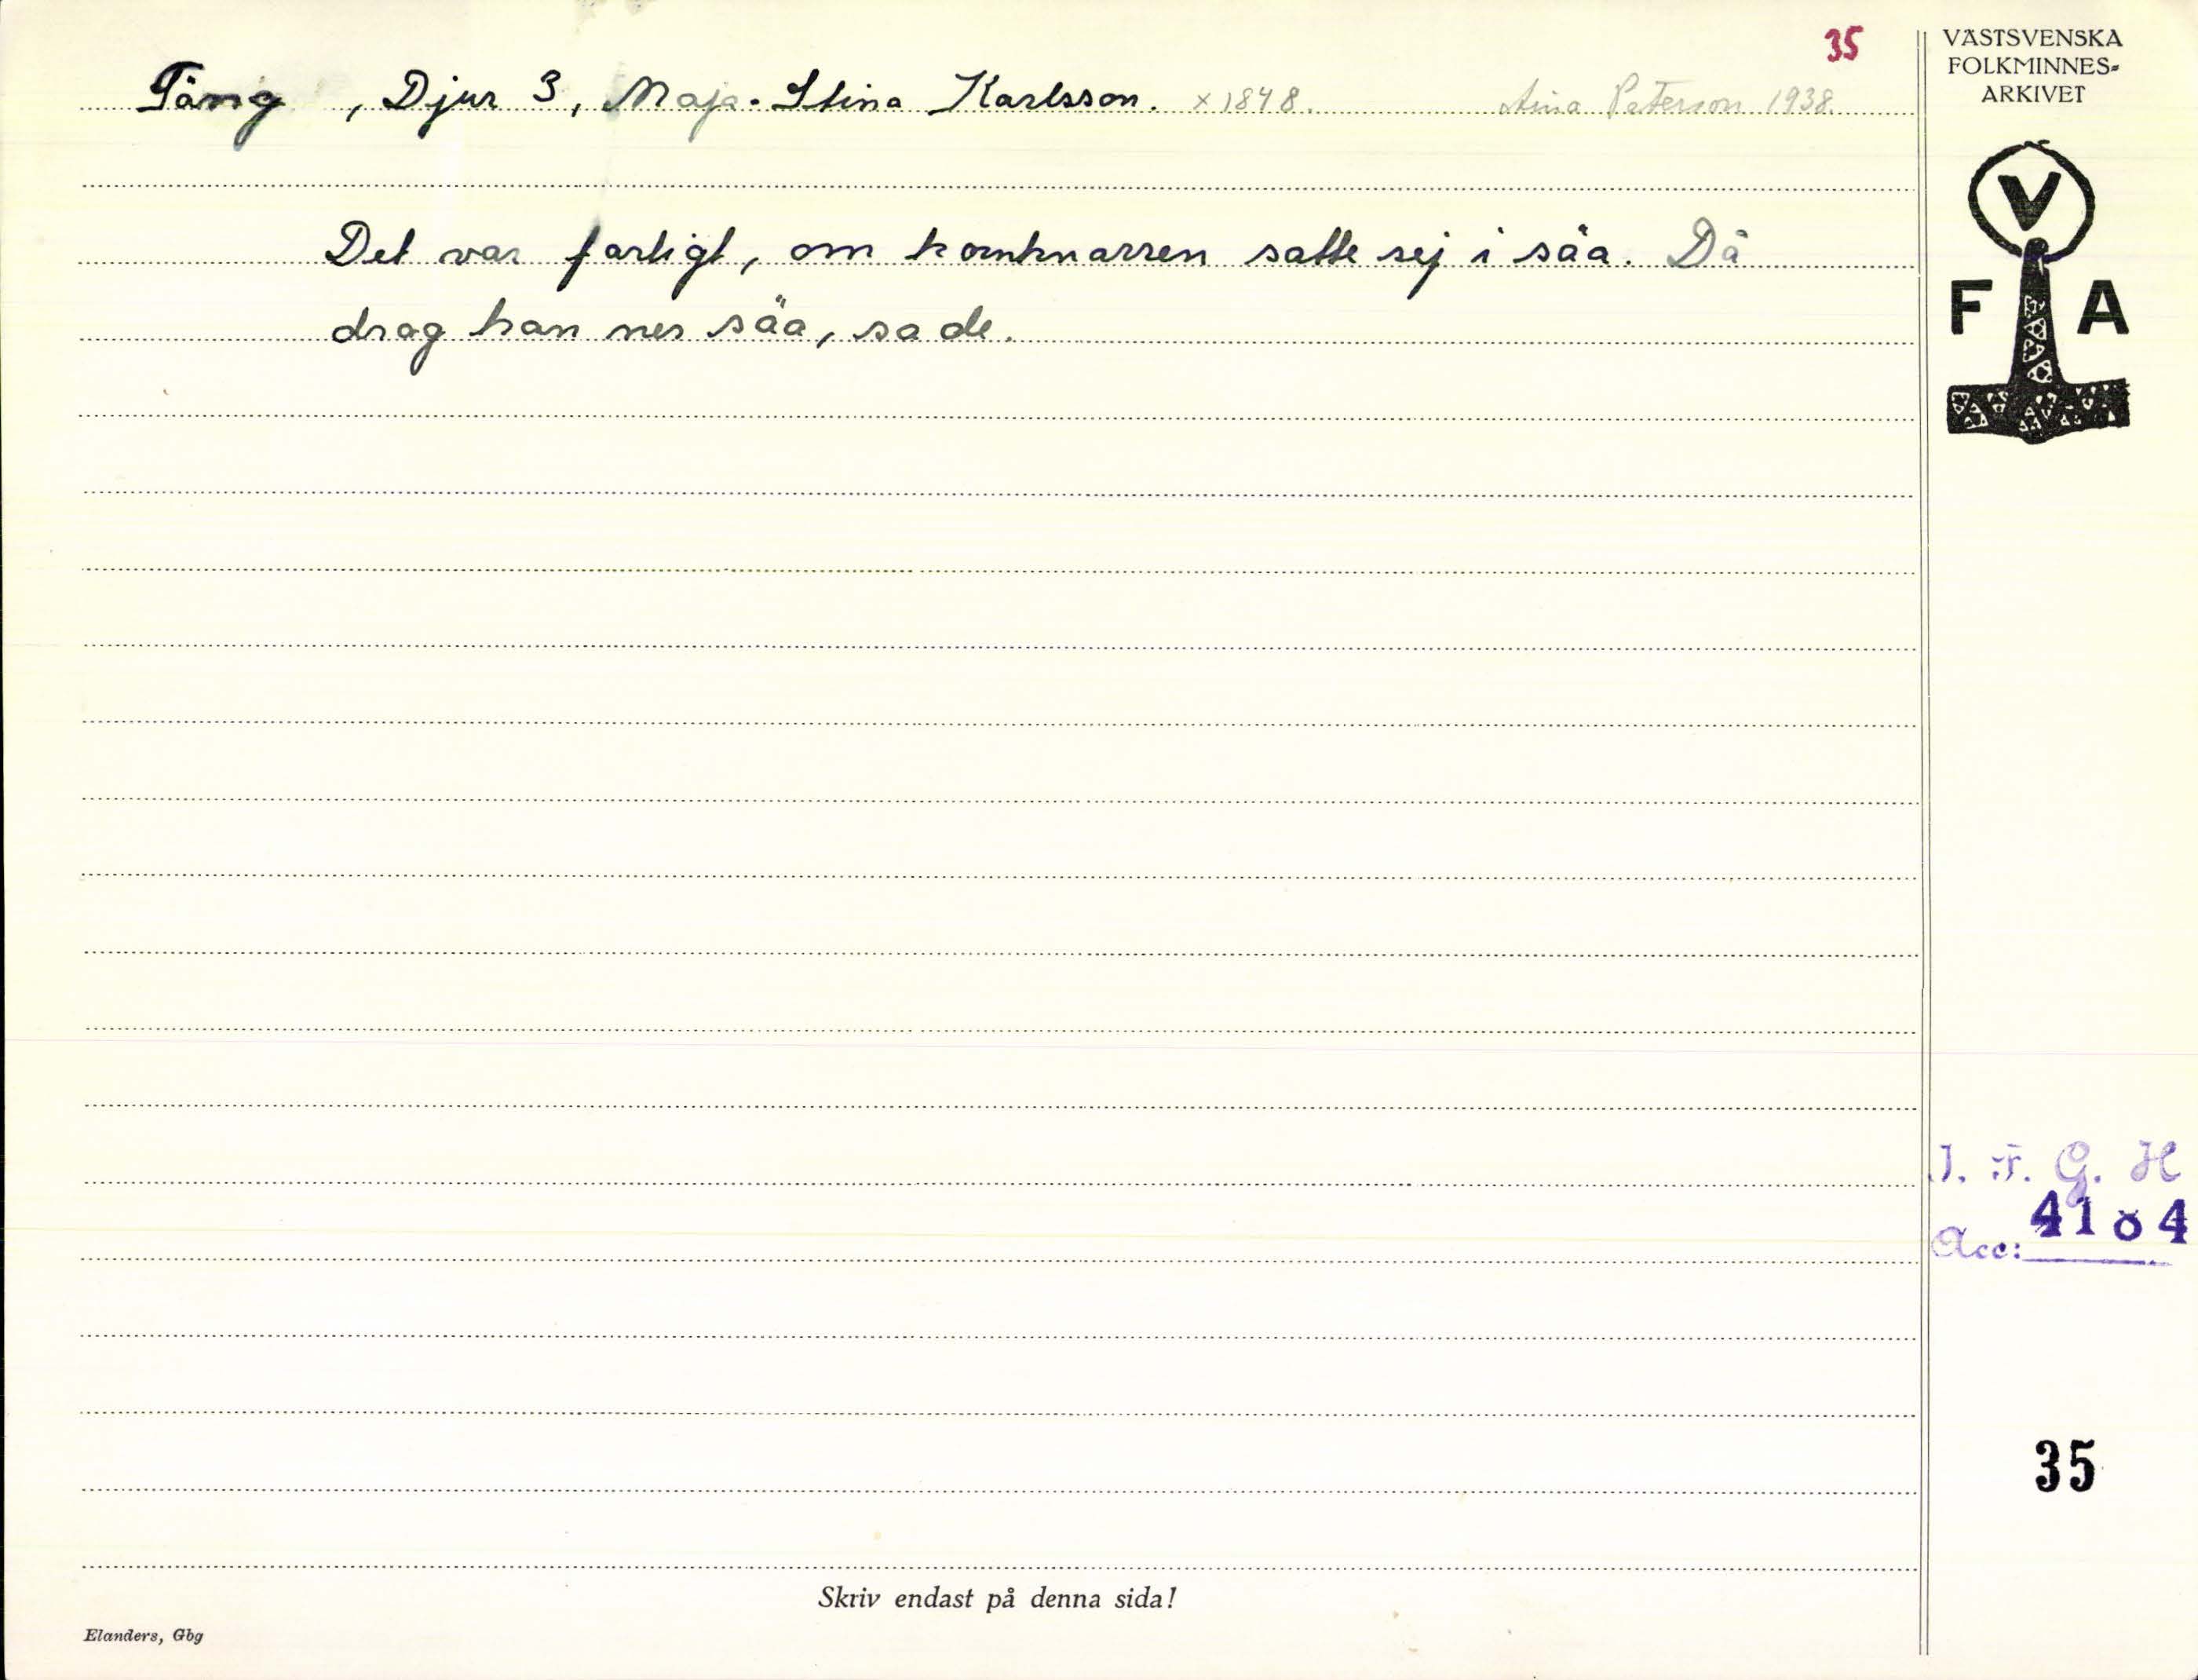 35
Täng, Djur 3, Maja-Stina Karlsson. x 1848. Aina Paterson 1938.
Det var farligt, om kornknarren satte sej i säa. Då
drog han ner säa, sa de.
VÄSTSVENSKA
FOLKMINNES-
ARKIVET
V
F A
I. F. G. H
Acc: 4184
35
Skriv endast på denna sida!
Elanders, Gbg